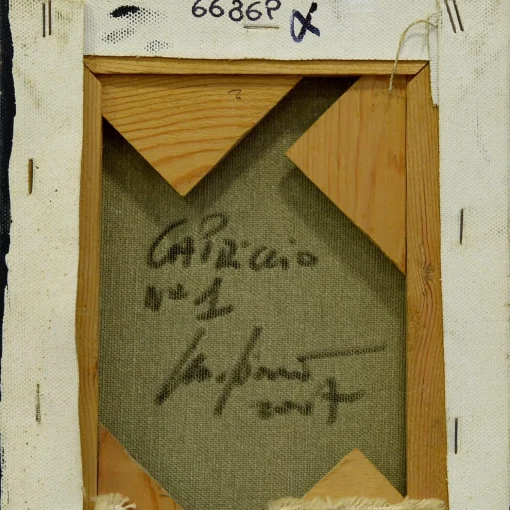 6686P α
CAPRiccio
Nº 1
2007